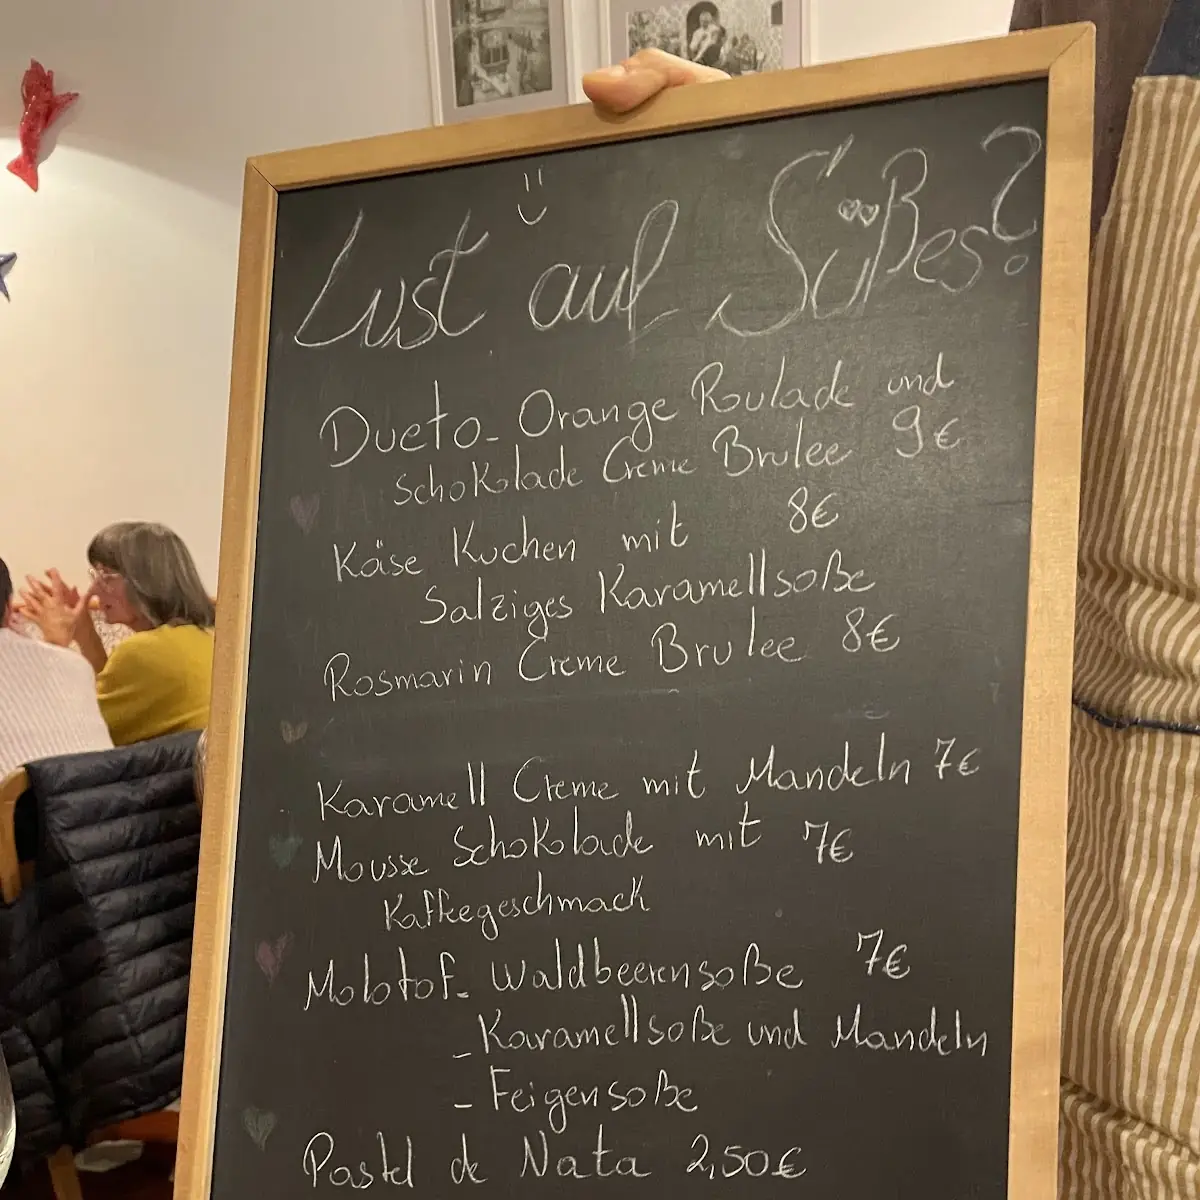 Lust auf Süßes?
Dueto - Orange Roulade und
Schokolade Creme Brulee 9€
Käse Kuchen mit 8€
Salziges Karamellsoße
Rosmarin Creme Brulee 8€
Karamell Creme mit Mandeln 7€
Mousse Schokolade mit 7€
Kaffeegeschmack
Molotof - Waldbeerensoße 7€
- Karamellsoße und Mandeln
- Feigensoße
Pastel de Nata 2,50€